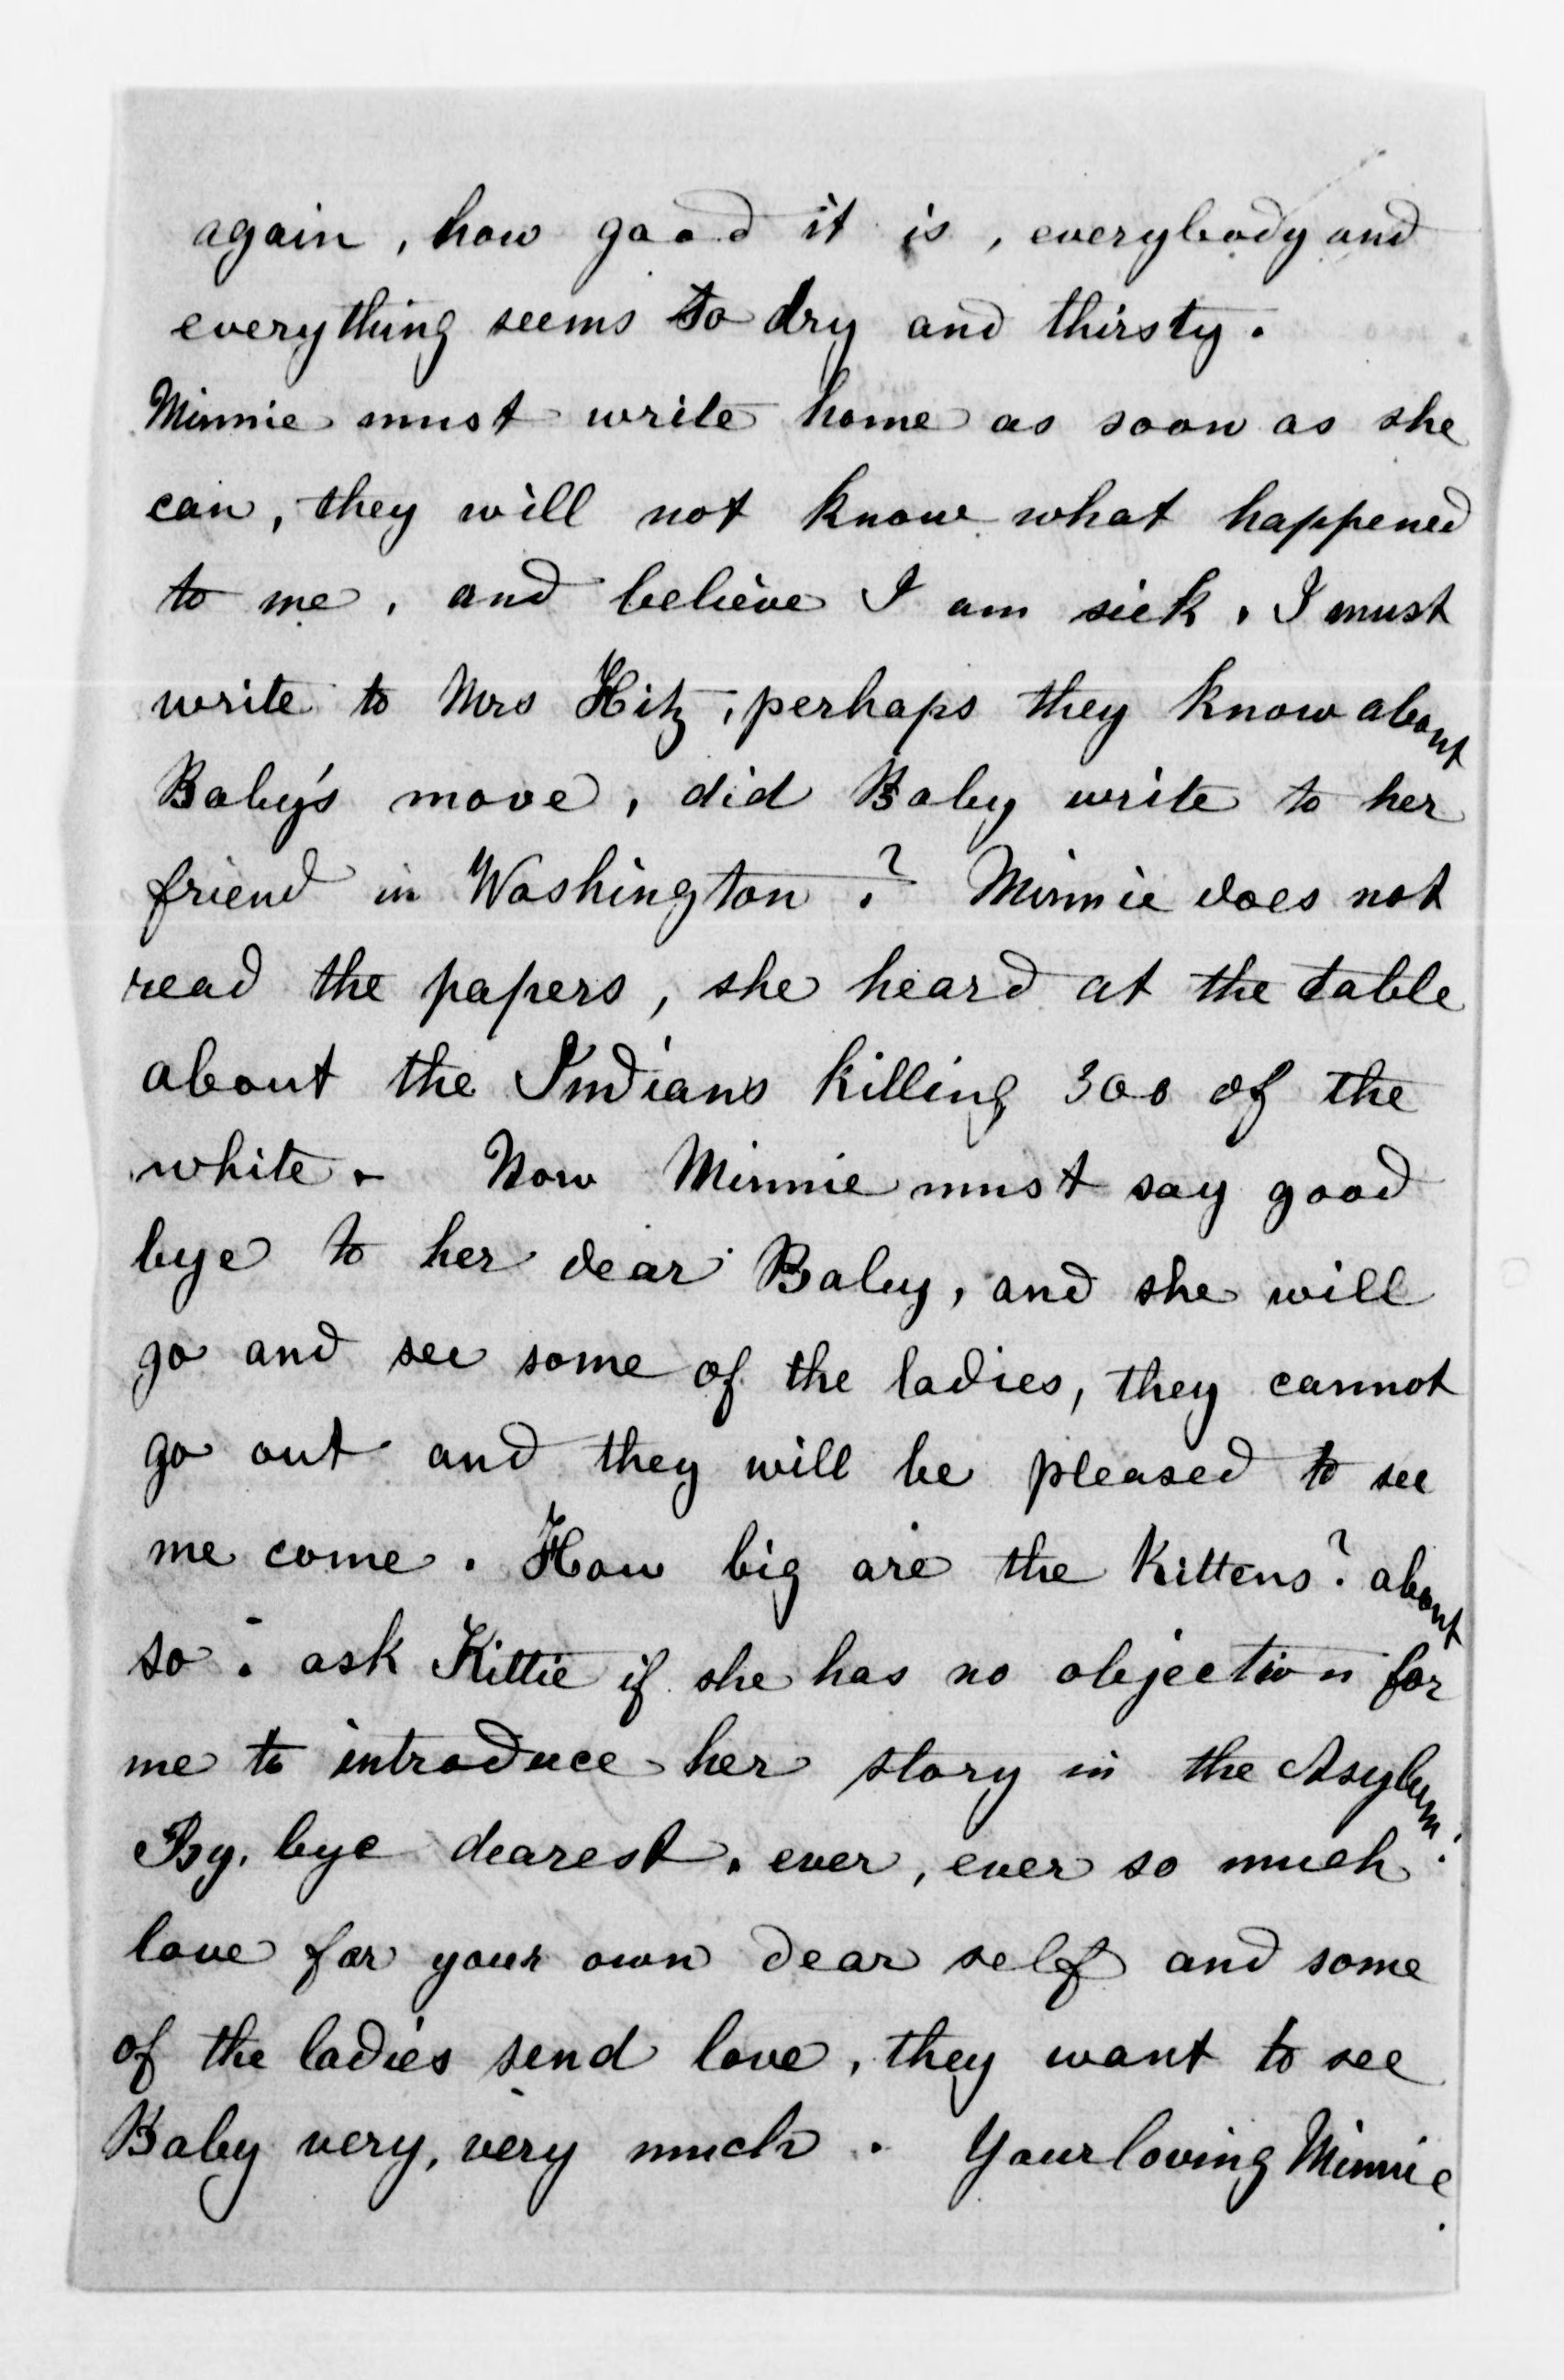 again, how good it is, everybody and
everything seems so dry and thirsty.
Minnie must write home as soon as she
can, they will not know what happened
to me, and believe I am sick. I must
write to Mrs Hitz, perhaps they know about
Baby's move, did Baby write to her
friend in Washington? Minnie does not
read the papers, she heard at the table
about the Indians killing 300 of the
white. Now Minnie must say good
bye to her dear Baby, and she will
go and see some of the ladies, they cannot
go out and they will be pleased to see
me come. How big are the Kittens? about
so. ask Kittie if she has no objection for
me to introduce her story in the Asylum.
By, bye dearest, ever, ever so much
love for your own dear self and some
of the ladies send love, they want to see
Baby very, very much. Your loving Minnie.